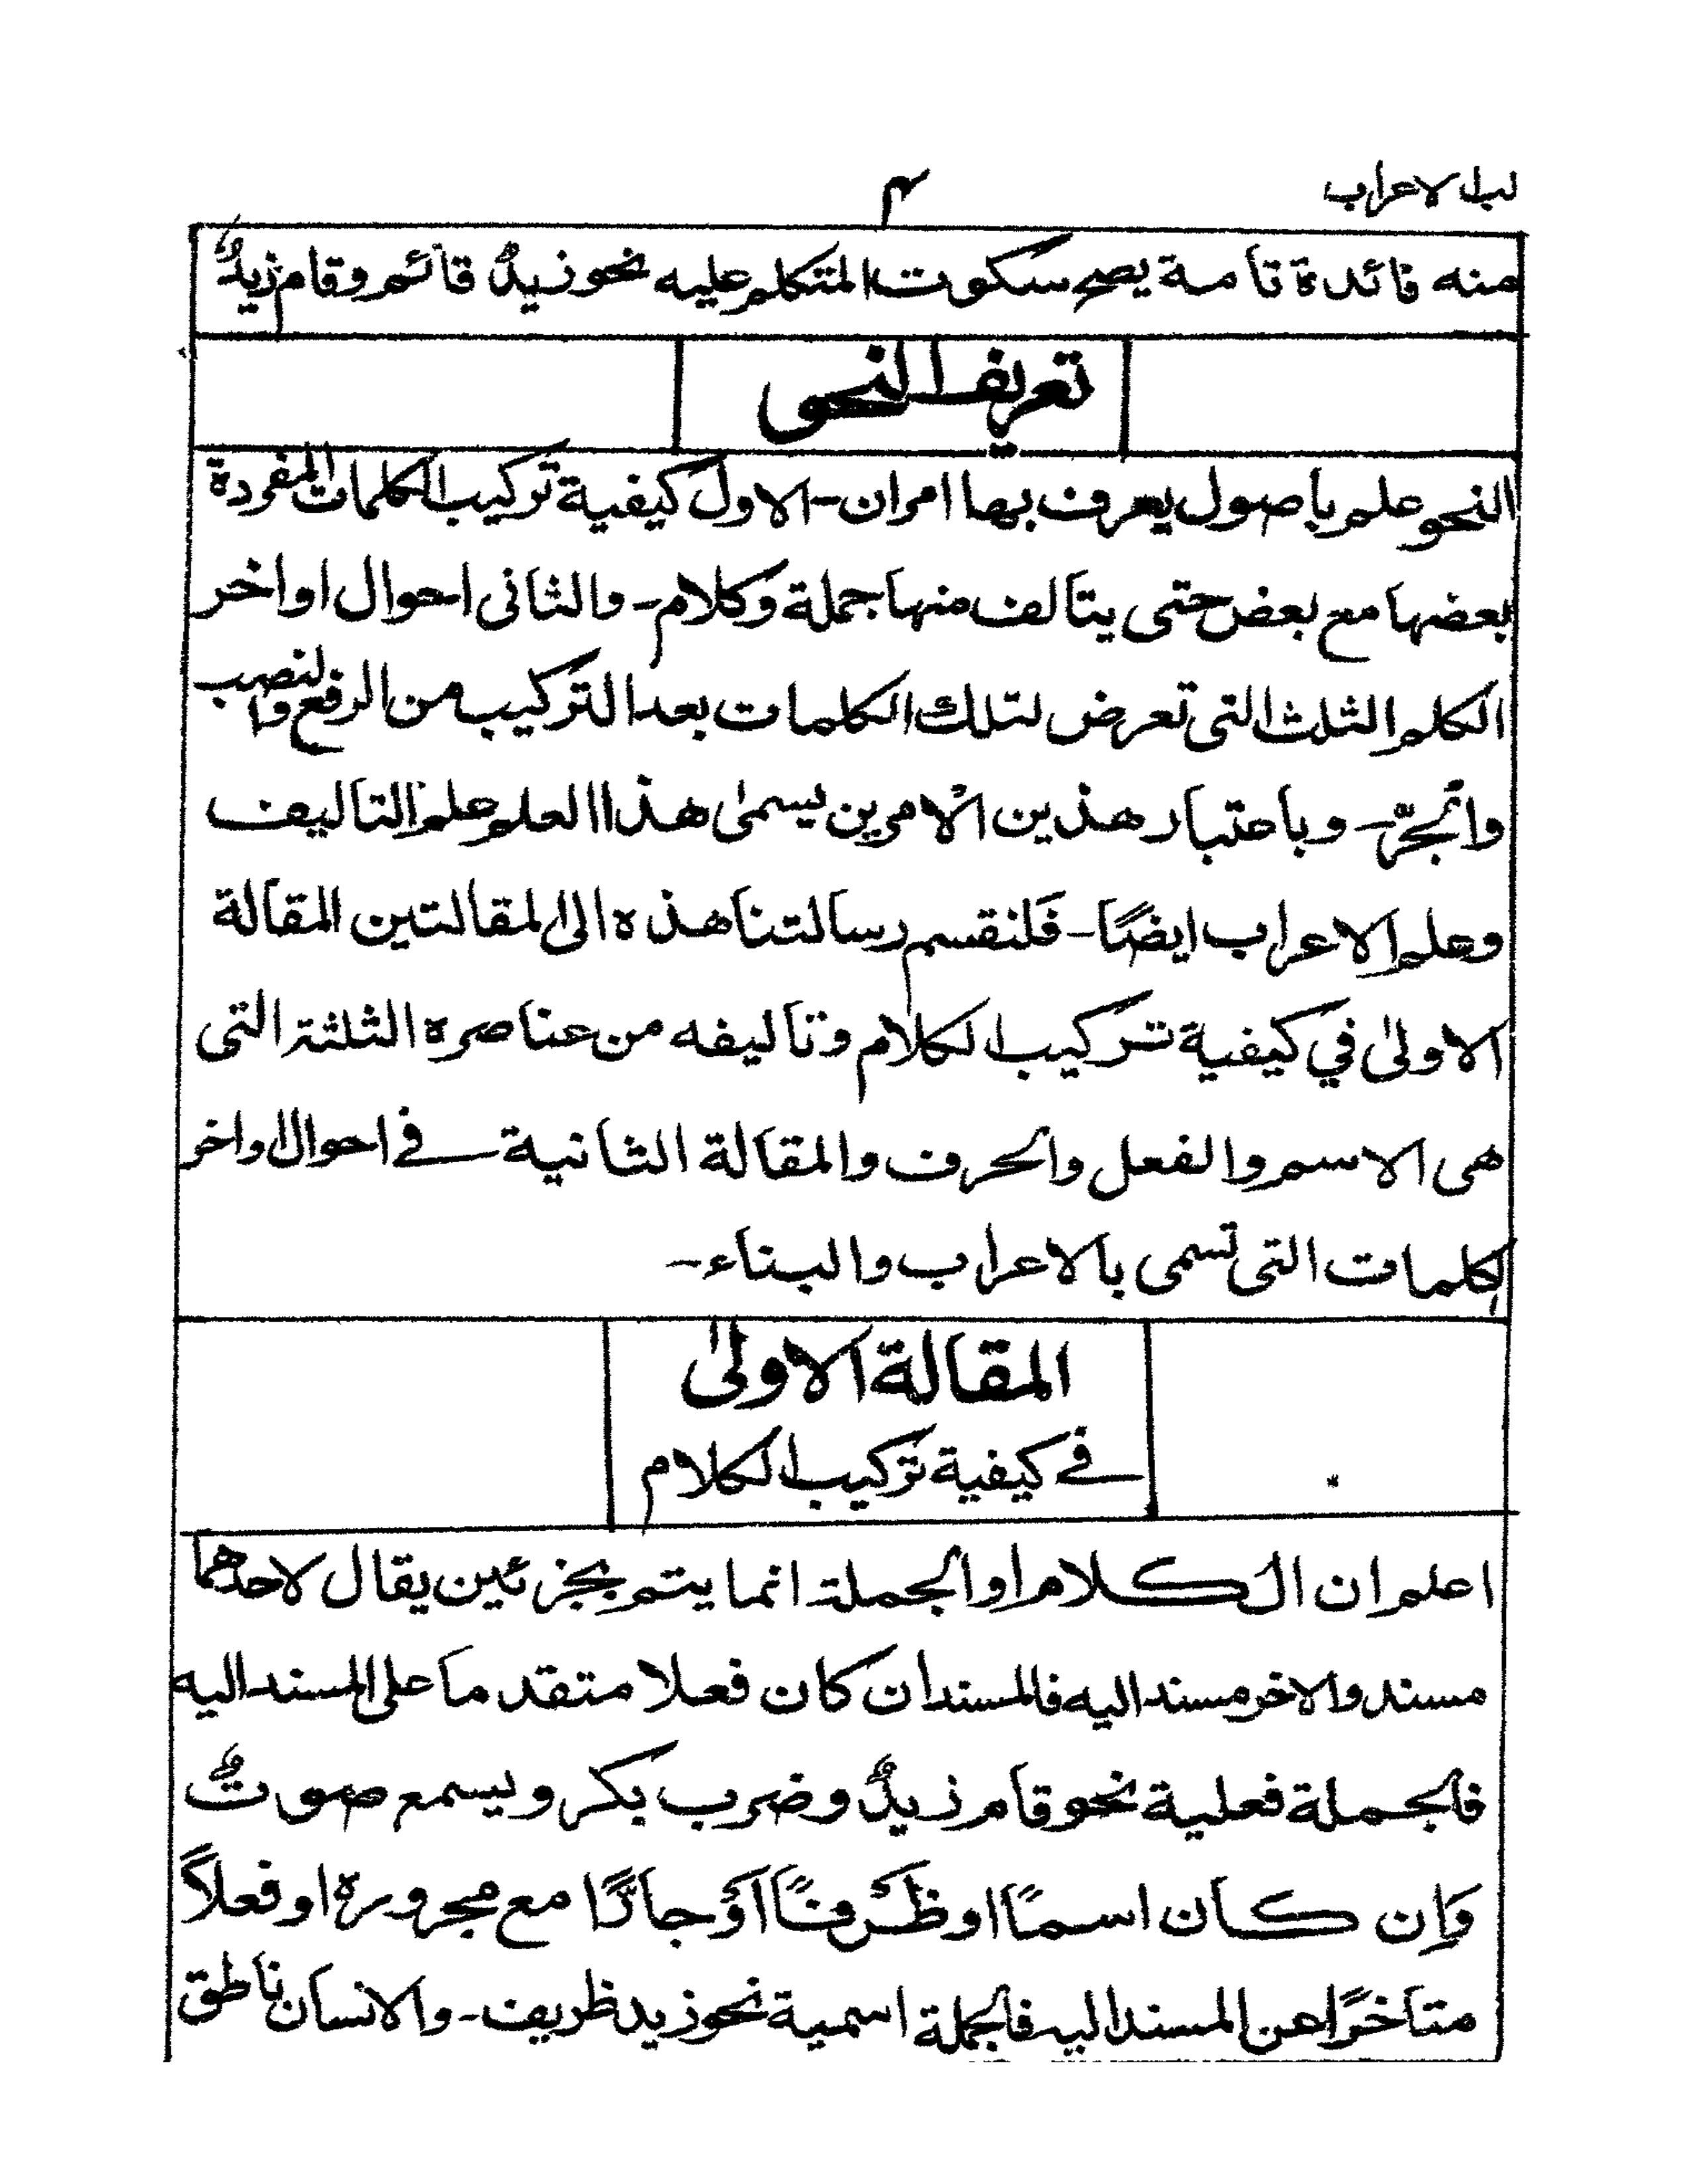 لب الاعراب
٣
منه فائدة تامة يصح سكوت المتكلم عليه نحو زيدٌ قائم وقام زيدٌ
تعريف النحو
النحو علم باصول يعرف بها امران - الاول كيفية تركيب الكلمات المفردة
بعضها مع بعض حتى يتالف منها جملة وكلام - والثانى احوال اواخر
الكلم الثلث التى تعرض لتلك الكلمات بعد التركيب من الرفع والنصب
والجرّ - وباعتبار هذين الْامرين يسمىٰ هذا العلم علم التاليف
وعلم الاعراب ايضًا - فَلنقسم رسالتنا هذه الى المقالتين المقالة
الاولىٰ في كيفية تركيب الكلام وتاليفه من عناصره الثلثة التى
هى الاسم والفعل والحرف والمقالة الثانية فے احوال اواخر
الكلمات التى تسمى بالاعراب والبناء -
المقالة الاولىٰ
فے كيفية تركيب الكلام
اعلم ان الكلام او الجملة انما يتم بجزئين يقال لاحدهما
مسند والاخر مسند اليه فالمسند ان كان فعلا متقدما على المسند اليه
فالجملة فعلية نحو قام زيدٌ وضرب بكر ويسمع صوتٌ
وَاِن كان اسمًا او ظَرفًا اَوْ جارًّا مع مجروره او فعلاً
متاخرًا عن المسند اليه فالجملة اسمية نحو زيد ظريف - والانسان ناطق